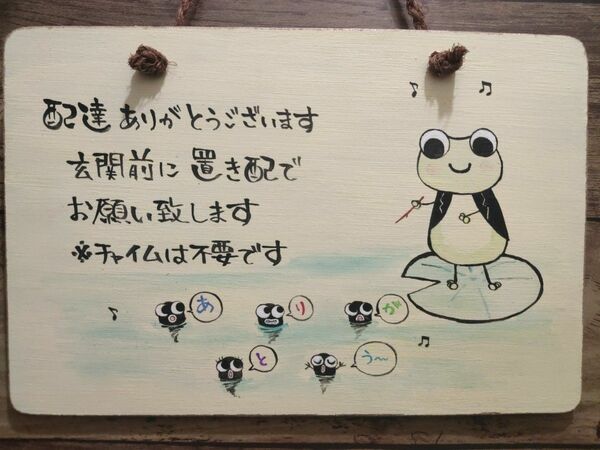 配達ありがとうございます
玄関前に置き配で
お願い致します
※チャイムは不要です
あ
り
が
と
う〜